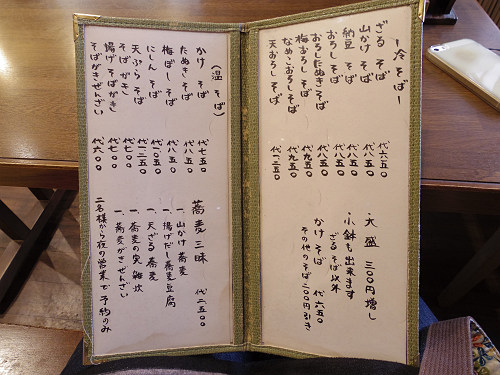 ー冷そばー
ざる そば 代六五〇
山かけ そば 代八五〇
納豆 そば 代八五〇
おろし そば 代八五〇
おろしたぬきそば 代八五〇
梅おろし そば 代九五〇
なめこおろしそば 代九五〇
天おろし そば 代一二五〇
・大盛 三〇〇円増し
小鉢も出来ます
ざるそば以外
かけそば 代六五〇
その他のそば二〇〇円引き
（温そば）
かけ そば 代七五〇
たぬき そば 代八五〇
梅ぼし そば 代八五〇
にしん そば 代一〇五〇
天ぷら そば 代一二五〇
そばがき 代七〇〇
揚げそばがき 代七〇〇
そばがきぜんざい 代六〇〇
蕎麦三昧 代二五〇〇
一、山かけ蕎麦
一、揚げだし蕎麦豆腐
一、天ざる蕎麦
一、蕎麦の実雑炊
一、蕎麦がきぜんざい
二名様から夜の営業で予約のみ